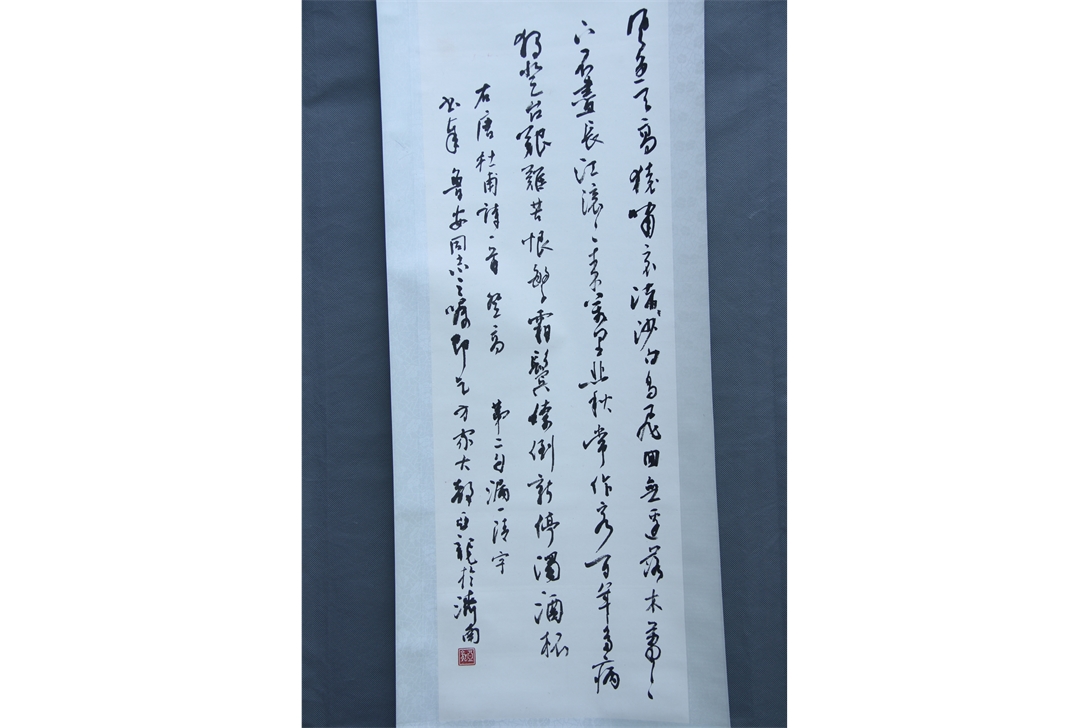 風急天高猿嘯哀渚沙白鳥飛回無邊落木蕭〻
下不盡長江滾〻來萬里悲秋常作客百年多病
獨登台艱難苦恨繁霜鬢潦倒新停濁酒杯
右唐杜甫詩一首登高 第二句漏一清字
書奉魯安同志之囑即乞方家大教龍於濟南